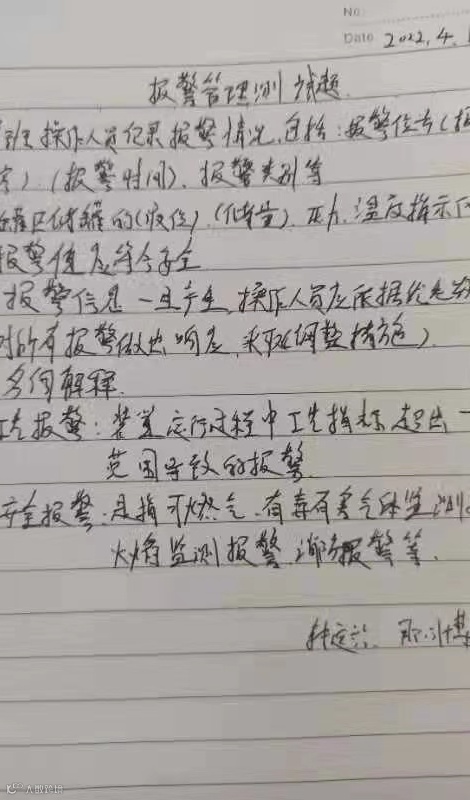 No
Date 2022.4.1
报警管理测试题
班操作人员纪录报警情况,包括:报警位号(报
).(报警时间).报警类别等
罐区储罐的(液位).(储量).压力.温度指示
报警值应符合安全
报警信息一旦产生,操作人员应依据优先级
对所有报警做出响应,采取(调整措施)
名词解释.
工艺报警:装置运行过程中工艺指标超出一
范围导致的报警.
安全报警:是指可燃气.有毒有害气体监测
火焰监测报警.消防报警等.